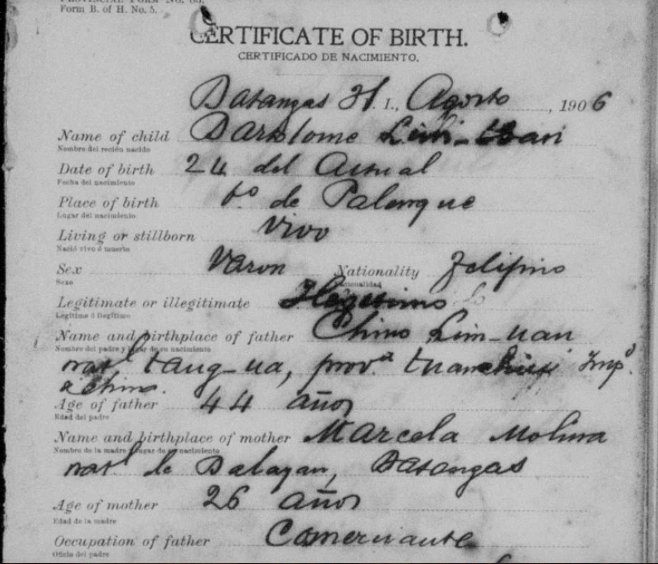 Form B. of H. No. 5.
CERTIFICATE OF BIRTH.
CERTIFICADO DE NACIMIENTO.
Batangas 31 I., Agosto, 1906
Name of child Bartolome
Nombre del recién nacido
Date of birth 24 del Actual
Fecha del nacimiento
Place of birth bo. de Palenque
Lugar del nacimiento
Living or stillborn Vivo
Nació vivo ó muerto
Sex Varon Nationality Filipino
Sexo Nacionalidad
Legitimate or illegitimate
Legítimo ó Ilegítimo
Name and birthplace of father Chino Lim-uan
Nombre del padre y lugar de su nacimiento
natl. prov.a Impo.
China.
Age of father 44 años
Edad del padre
Name and birthplace of mother Marcela Molina
Nombre de la madre y lugar de su nacimiento
natl. de Balayan, Batangas
Age of mother 26 años
Edad de la madre
Occupation of father Comerciante
Oficio del padre